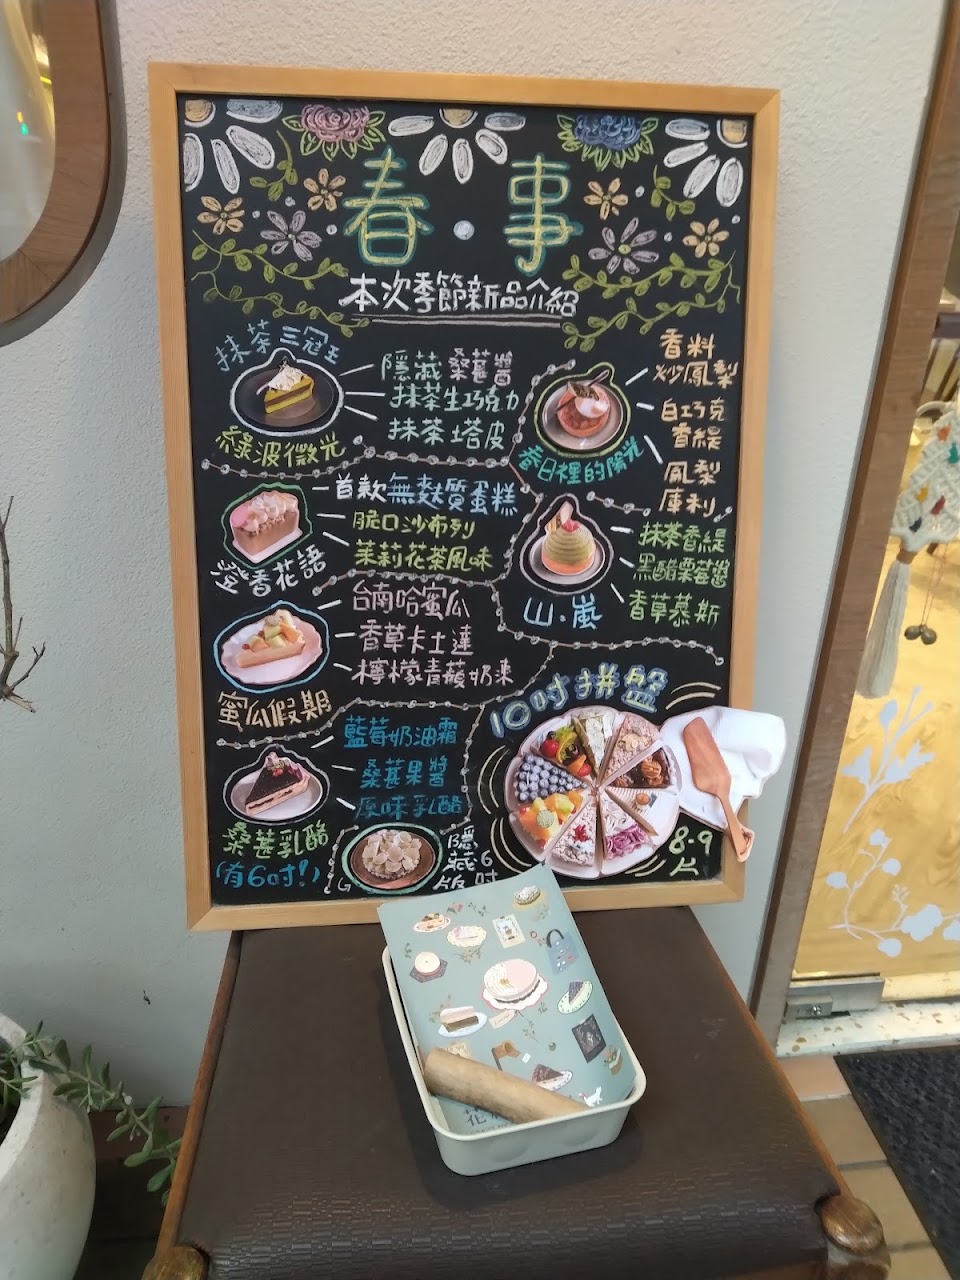 春·事
本次季節新品介紹
抹茶三冠王
隱藏桑葚醬
抹茶生巧克力
抹茶塔皮
綠波微光
香料
炒鳳梨
白巧克
香緹
鳳梨
庫利
春日裡的陽光
首款無麩質蛋糕
脆口沙布列
茉莉花茶風味
澄香花語
抹茶香緹
黑醋栗莓醬
香草慕斯
山·嵐
台南哈蜜瓜
香草卡士達
檸檬青蘋奶凍
蜜瓜假期
藍莓奶油霜
桑葚果醬
原味乳酪
桑葚乳酪
(有6吋!)
隱藏版
6吋
10吋拼盤
8-9
片
花